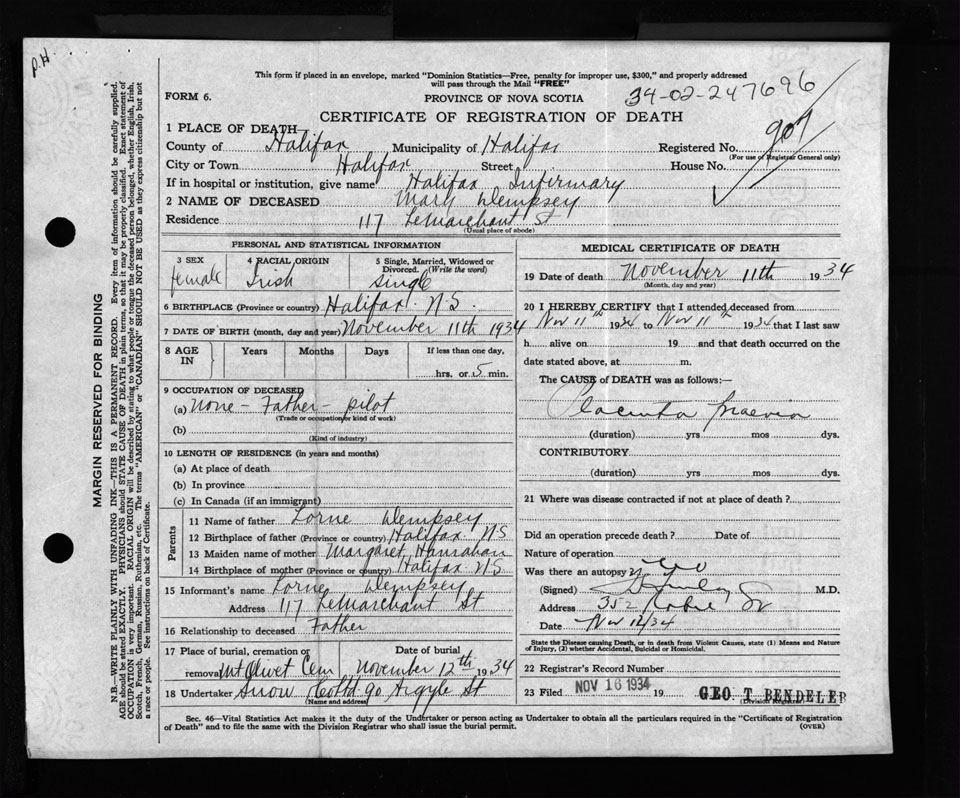 P.H.
This form if placed in an envelope, marked "Dominion Statistics—Free, penalty for improper use, $300," and properly addressed
will pass through the Mail "FREE"
FORM 6.
PROVINCE OF NOVA SCOTIA
34-02-247696
CERTIFICATE OF REGISTRATION OF DEATH
1 PLACE OF DEATH—
907
County of Halifax Municipality of Halifax Registered No.
(For use of Registrar General only)
City or Town Halifax Street House No.
If in hospital or institution, give name Halifax Infirmary
2 NAME OF DECEASED Mary Dempsey
Residence 117 LeMarchant St
(Usual place of abode)
PERSONAL AND STATISTICAL INFORMATION
3 SEX female
4 RACIAL ORIGIN Irish
5 Single, Married, Widowed or Divorced. (Write the word) Single
6 BIRTHPLACE (Province or country) Halifax N.S.
7 DATE OF BIRTH (month, day and year) November 11th 1934
8 AGE IN Years Months Days If less than one day, hrs. or 5 min.
9 OCCUPATION OF DECEASED
(a) None - Father - pilot
(Trade or occupation or kind of work)
(b)
(Kind of industry)
10 LENGTH OF RESIDENCE (in years and months)
(a) At place of death
(b) In province
(c) In Canada (if an immigrant)
Parents
11 Name of father Lorne Dempsey
12 Birthplace of father (Province or country) Halifax NS
13 Maiden name of mother Margaret Hanrahan
14 Birthplace of mother (Province or country) Halifax NS
15 Informant's name Lorne Dempsey
Address 117 LeMarchant St
16 Relationship to deceased Father
17 Place of burial, cremation or removal Mt Olivet Cem
Date of burial November 12th 1934
18 Undertaker Snow Co Ltd 90 Argyle St
(Name and address)
MEDICAL CERTIFICATE OF DEATH
19 Date of death November 11th 1934
(Month, day and year)
20 I HEREBY CERTIFY that I attended deceased from
Nov 11th 1934 to Nov 11th 1934 that I last saw
h alive on 19 and that death occurred on the
date stated above, at m.
The CAUSE of DEATH was as follows:—
Placenta Praevia
(duration) yrs mos dys.
CONTRIBUTORY
(duration) yrs mos dys.
21 Where was disease contracted if not at place of death?
Did an operation precede death? Date of
Nature of operation
Was there an autopsy? No
(Signed) M.D.
Address 352 St
Date Nov 12/34
State the Disease causing Death, or in death from Violent Causes, state (1) Means and Nature
of Injury, (2) whether Accidental, Suicidal or Homicidal.
22 Registrar's Record Number
23 Filed NOV 16 1934 19 GEO T BENDELER
(Division Registrar)
Sec. 46—Vital Statistics Act makes it the duty of the Undertaker or person acting as Undertaker to obtain all the particulars required in the "Certificate of Registration
of Death" and to file the same with the Division Registrar who shall issue the burial permit.
(OVER)
MARGIN RESERVED FOR BINDING
N.B.—WRITE PLAINLY WITH UNFADING INK—THIS IS A PERMANENT RECORD. Every item of information should be carefully supplied.
AGE should be stated EXACTLY. PHYSICIANS should STATE CAUSE OF DEATH in plain terms, so that it may be properly classified. Exact statement of
OCCUPATION is very important. RACIAL ORIGIN will be described by stating to what people or tongue the deceased person belonged, whether English, Irish,
Scotch, French, German, Russian, Ruthenian, etc. The terms "AMERICAN" or "CANADIAN" SHOULD NOT BE USED as they express citizenship but not
a race or people. See instructions on back of Certificate.